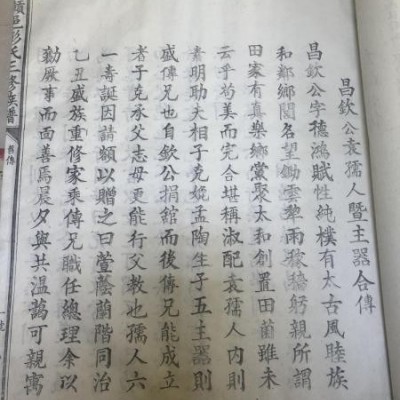 昌欽公袁孺人暨主器合傳
昌欽公字德鴻賦性純樸有太古風睦族
和鄰鄉閭名望鋤雲犂雨稼穡躬親所謂
田家有真樂鄉黨聚太和創置田園雖未
云乎苟美而完合堪稱淑配袁孺人內則
素明助夫相子克媲孟陶生子五主器則
盛傳兄也自欽公捐舘而後傳兄能成立
者子克承父志母更能行父教也孺人六
一壽誕因請額以贈之曰萱蔭蘭階同治
乙丑盛族重修家乘傳兄職任總理余以
勷厥事而面善焉晨夕與共溫藹可親寓
氏三修族譜